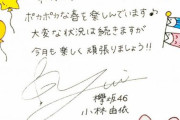 ポカポカな春を楽しんでいます♪
大変な状況は続きますが
今月も楽しく頑張りましょう!!
欅坂46
小林由依